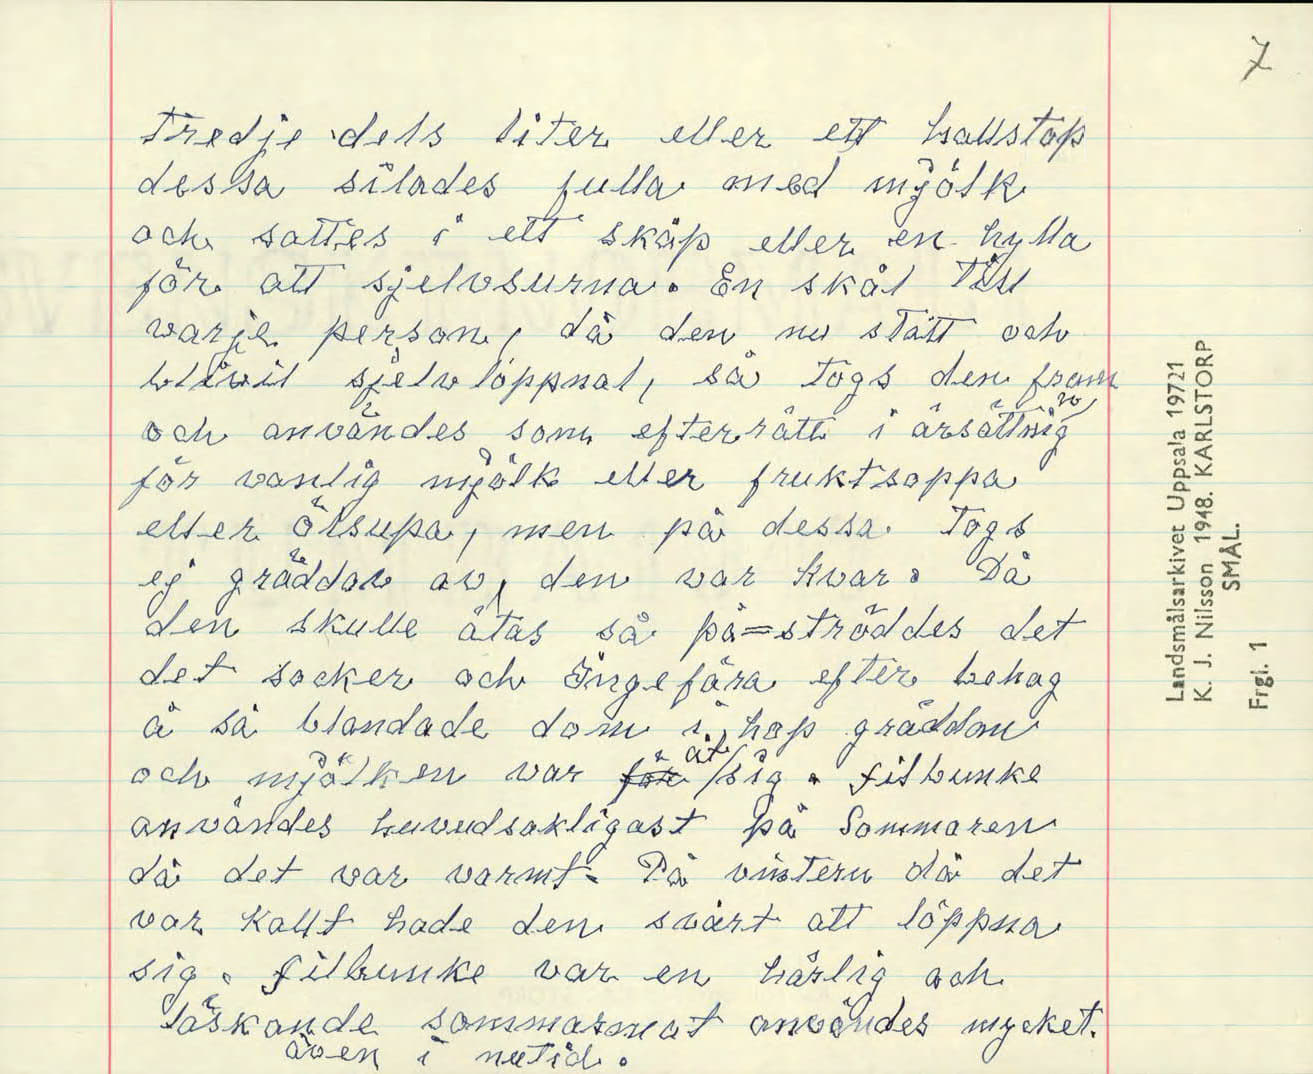 7
tredje dels liter eller ett halfstop
dessa silades fulla med mjölk
och sattes i ett skåp eller en hylla
för att sjelvsurna. En skål till
varje person, då den nu stått och
blivit självlöppnat, så togs den fram
och användes som efterrätt i ärsättning
för vanlig mjölk eller fruktsoppa
eller ölsupa, men på dessa togs
ej gräddan av, den var kvar. Då
den skulle ätas så på=ströddes det
det socker och Ingefära efter behag
å så blandade dom i hop grädden
och mjölken var för åt sig. filbunke
användes huvudsakligast på Sommaren
då det var varmt. På vintern då det
var kallt hade den svårt att löppna
sig. filbunke var en härlig och
läskande sommarmat användes mycket.
även i nutid.
Landsmålsarkivet Uppsala 19721
K. J. Nilsson 1948. KARLSTORP
SMÅL.
Frgl. 1